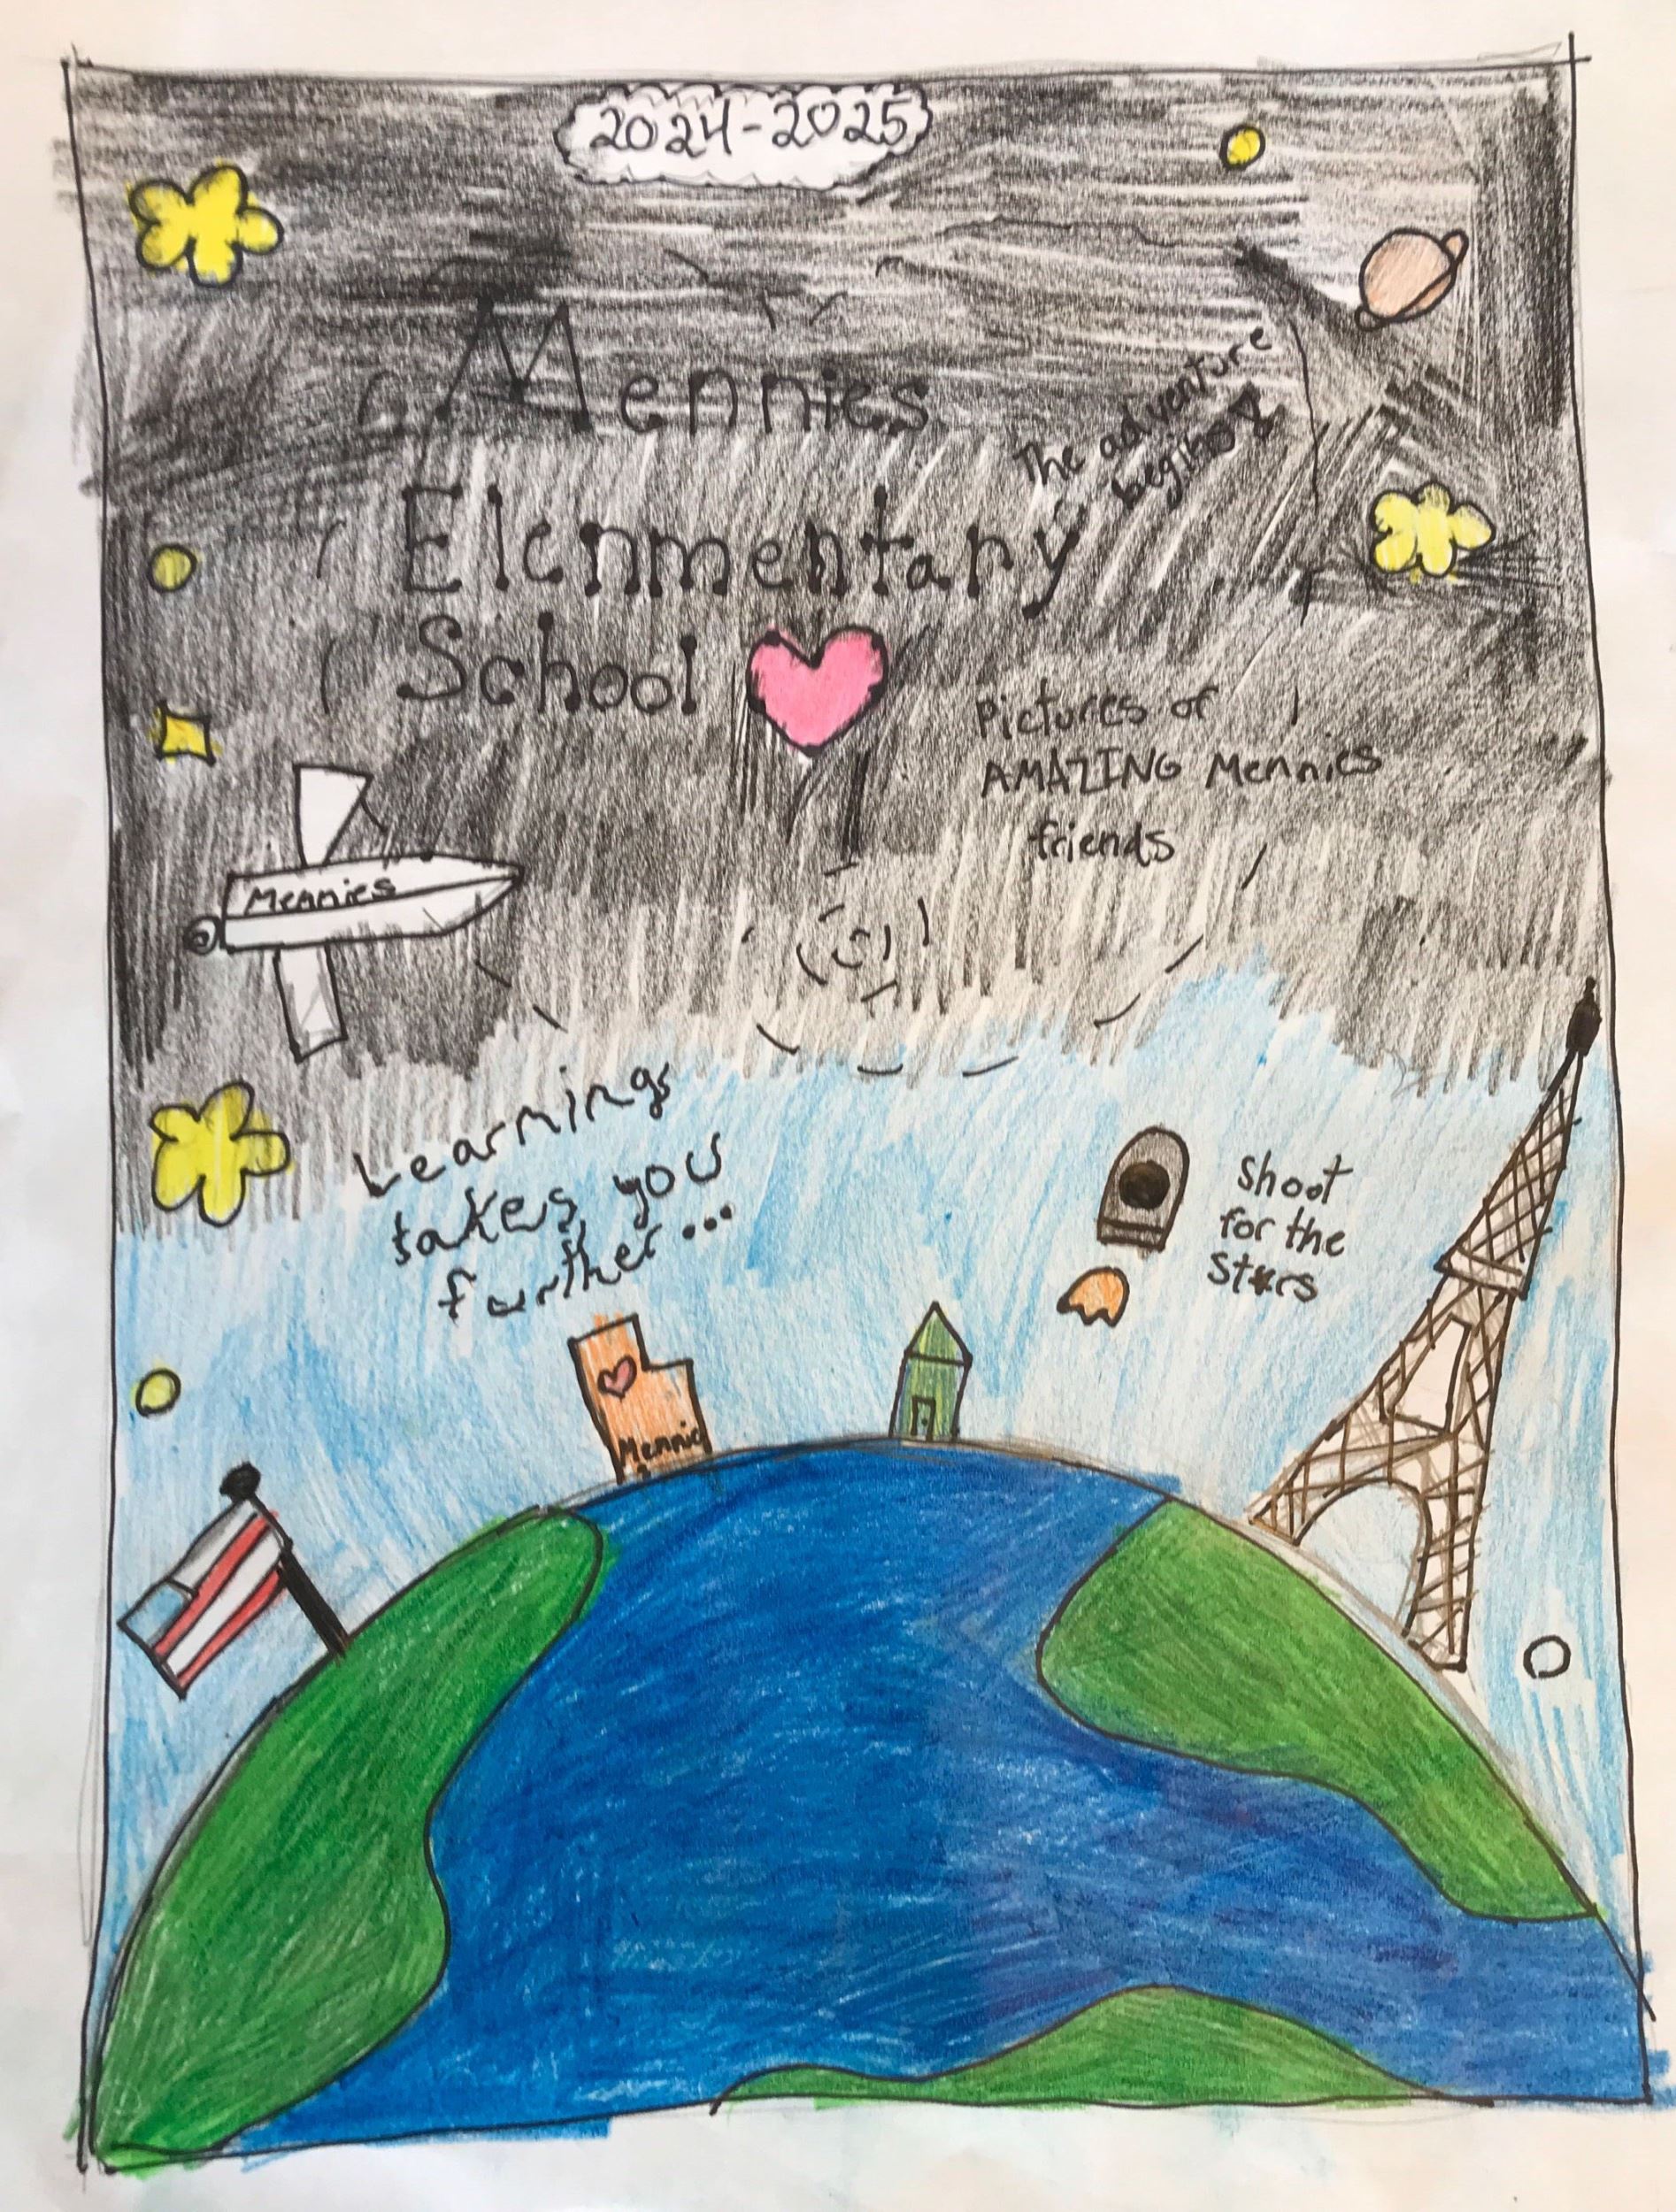 2024-2025
Mennies
Elenmentary
School
The adventure
begins
Pictures of
AMAZING Mennies
friends
Mennies
Learnings
takes you
further...
Shoot
for the
stars
Mennie